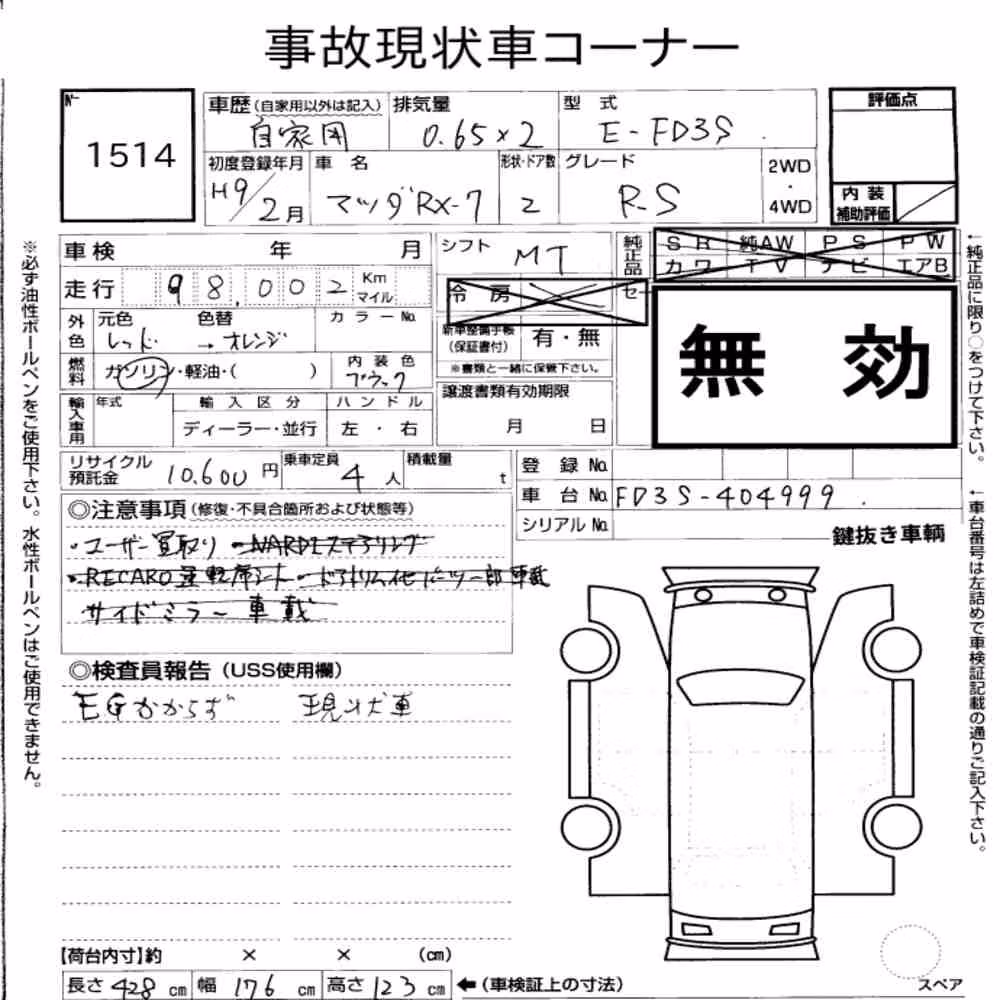 事故現状車コーナー
No.
1514
車歴(自家用以外は記入) 排気量 型式 評価点
自家用 0.65×2 E-FD3S
初度登録年月 車名 形状・ドア数 グレード 2WD
・
4WD
H9/2月 マツダRX-7 2 R-S
内装
補助評価
車検 年 月 シフト MT 純正品 SR 純AW PS PW
カワ TV ナビ エアB
走行 98,002 Km
マイル
冷房 セ
無効
外色 元色 色替 カラーNo.
レッド → オレンジ
新車整備手帳
(保証書付) 有・無
※書類と一緒に保管下さい。
燃料 ガソリン・軽油・( ) 内装色
ブラック
譲渡書類有効期限
月 日
輸入車用 年式 輸入区分 ハンドル
ディーラー・並行 左・右
リサイクル
預託金 10.600円 乗車定員 4人 積載量 t
登録No.
車台No. FD3S-404999
シリアルNo.
鍵抜き車輌
◎注意事項(修復・不具合箇所および状態等)
・ユーザー買取り ・NARDIステアリング
・RECARO運転席シート・ドアトリム他パーツ一部車載
サイドミラー車載
◎検査員報告(USS使用欄)
EGかからず 現状車
【荷台内寸】約 × × (cm)
長さ 428 cm 幅 176 cm 高さ 123 cm ←(車検証上の寸法)
スペア
※必ず油性ボールペンをご使用下さい。水性ボールペンはご使用できません。
←純正品に限り○をつけて下さい。
←車台番号は左詰めで車検証記載の通りご記入下さい。